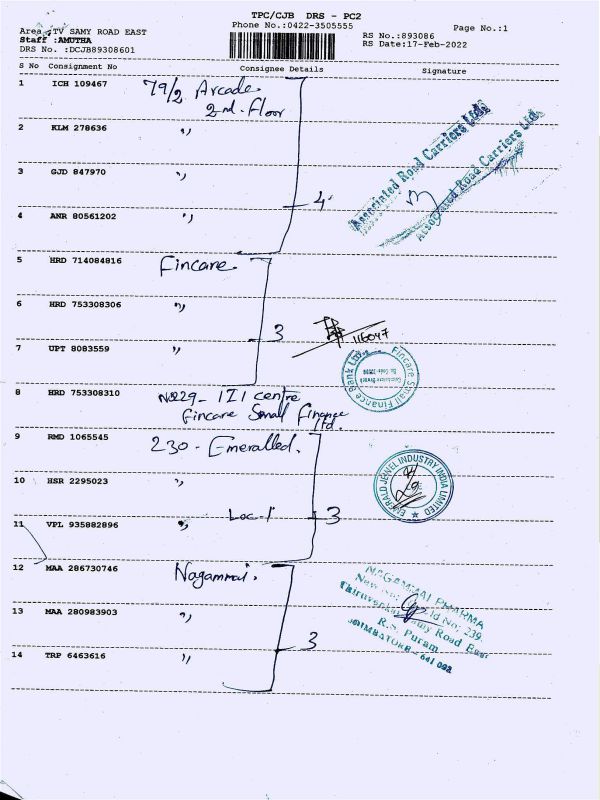 TPC/CJB DRS - PC2
Phone No.:0422-3505555
Page No.:1
Area :TV SAMY ROAD EAST
Staff :AMUTHA
DRS No. :DCJB89308601
RS No.:893086
RS Date:17-Feb-2022
S No Consignment No Consignee Details Signature
1 ICH 109467 79/2 Arcade
2nd Floor
2 KLM 278636 "
3 GJD 847970 "
4
Associated Road Carriers Ltd.
Associated Road Carriers Ltd.
4 ANR 80561202 "
5 HRD 714084816 Fincare
6 HRD 753308306 "
3
116047
7 UPT 8083559 "
Fincare Small Finance Bank Ltd.
8 HRD 753308310 No229- 121 centre
Fincare Small Finance
ltd.
9 RMD 1065545 230 - Emeralled.
10 HSR 2295023 "
EMERALD JEWEL INDUSTRY INDIA LIMITED
Loc-1
3
11 VPL 935882896 "
12 MAA 286730746 Nagammai.
NAGAMMAI PHARMA
New No: Old No: 239,
Thiruvenkatasamy Road East
R.S. Puram
COIMBATORE - 641 002
13 MAA 280983903 "
3
14 TRP 6463616 "